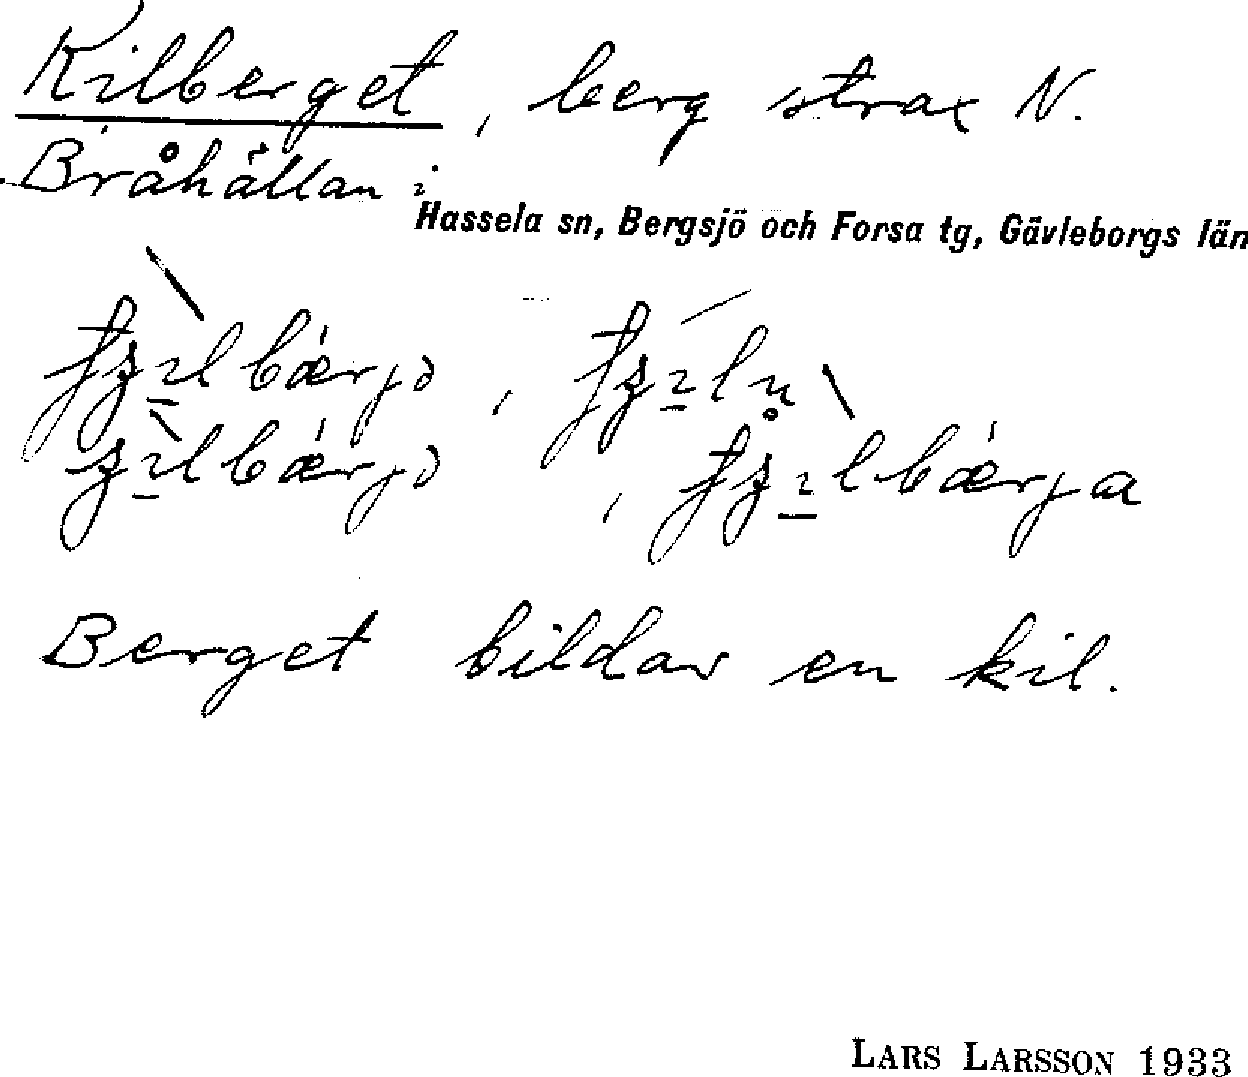 Kilberget, berg strax N.
Bråhällan i
Hassela sn, Bergsjö och Forsa tg, Gävleborgs län
Berget bildar en kil.
LARS LARSSON 1933